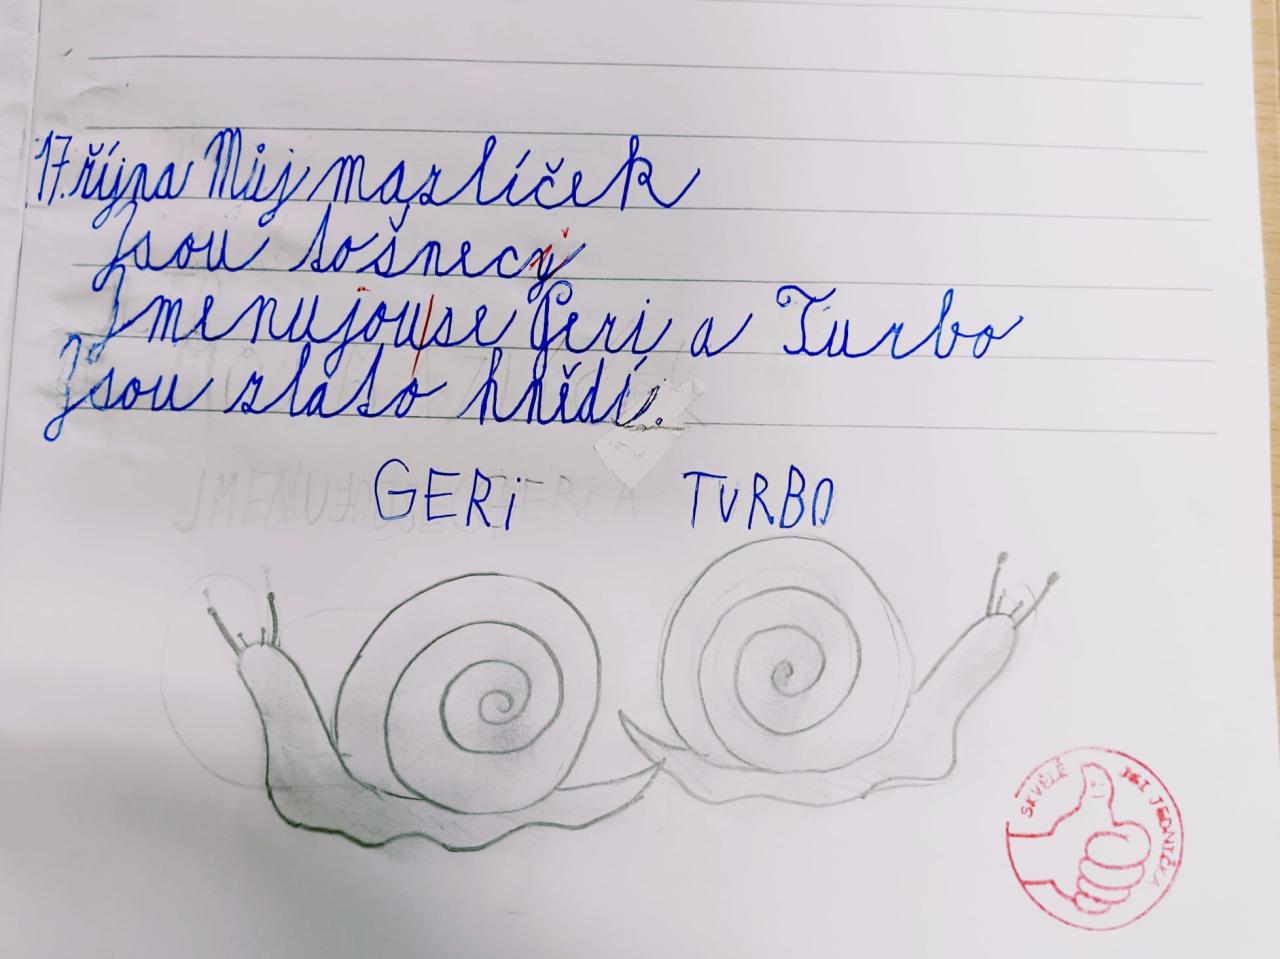 17. října Můj mazlíček
Jsou to šneci
Jmenujou se Geri a Turbo
Jsou zlato hnědí.
GERi TURBO
SKVĚLÉ JSI JEDNIČKA